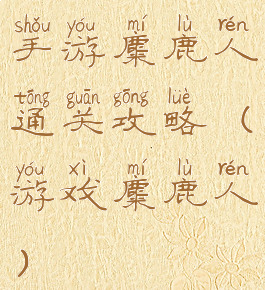 shǒu yóu mí lù rén
手游麋鹿人
tōng guān gōng lüè
通关攻略（
yóu xì mí lù rén
游戏麋鹿人
）